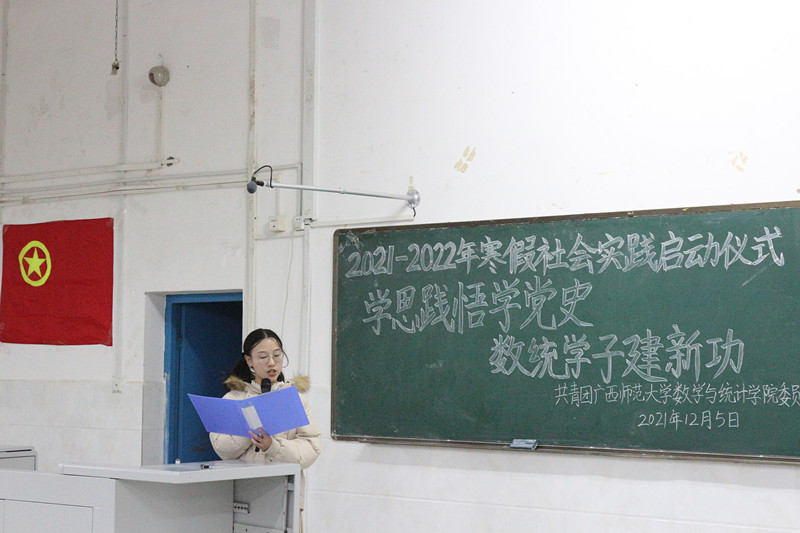 2021-2022年寒假社会实践启动仪式
学思践悟学党史
数统学子建新功
共青团广西师范大学数学与统计学院委员
2021年12月5日